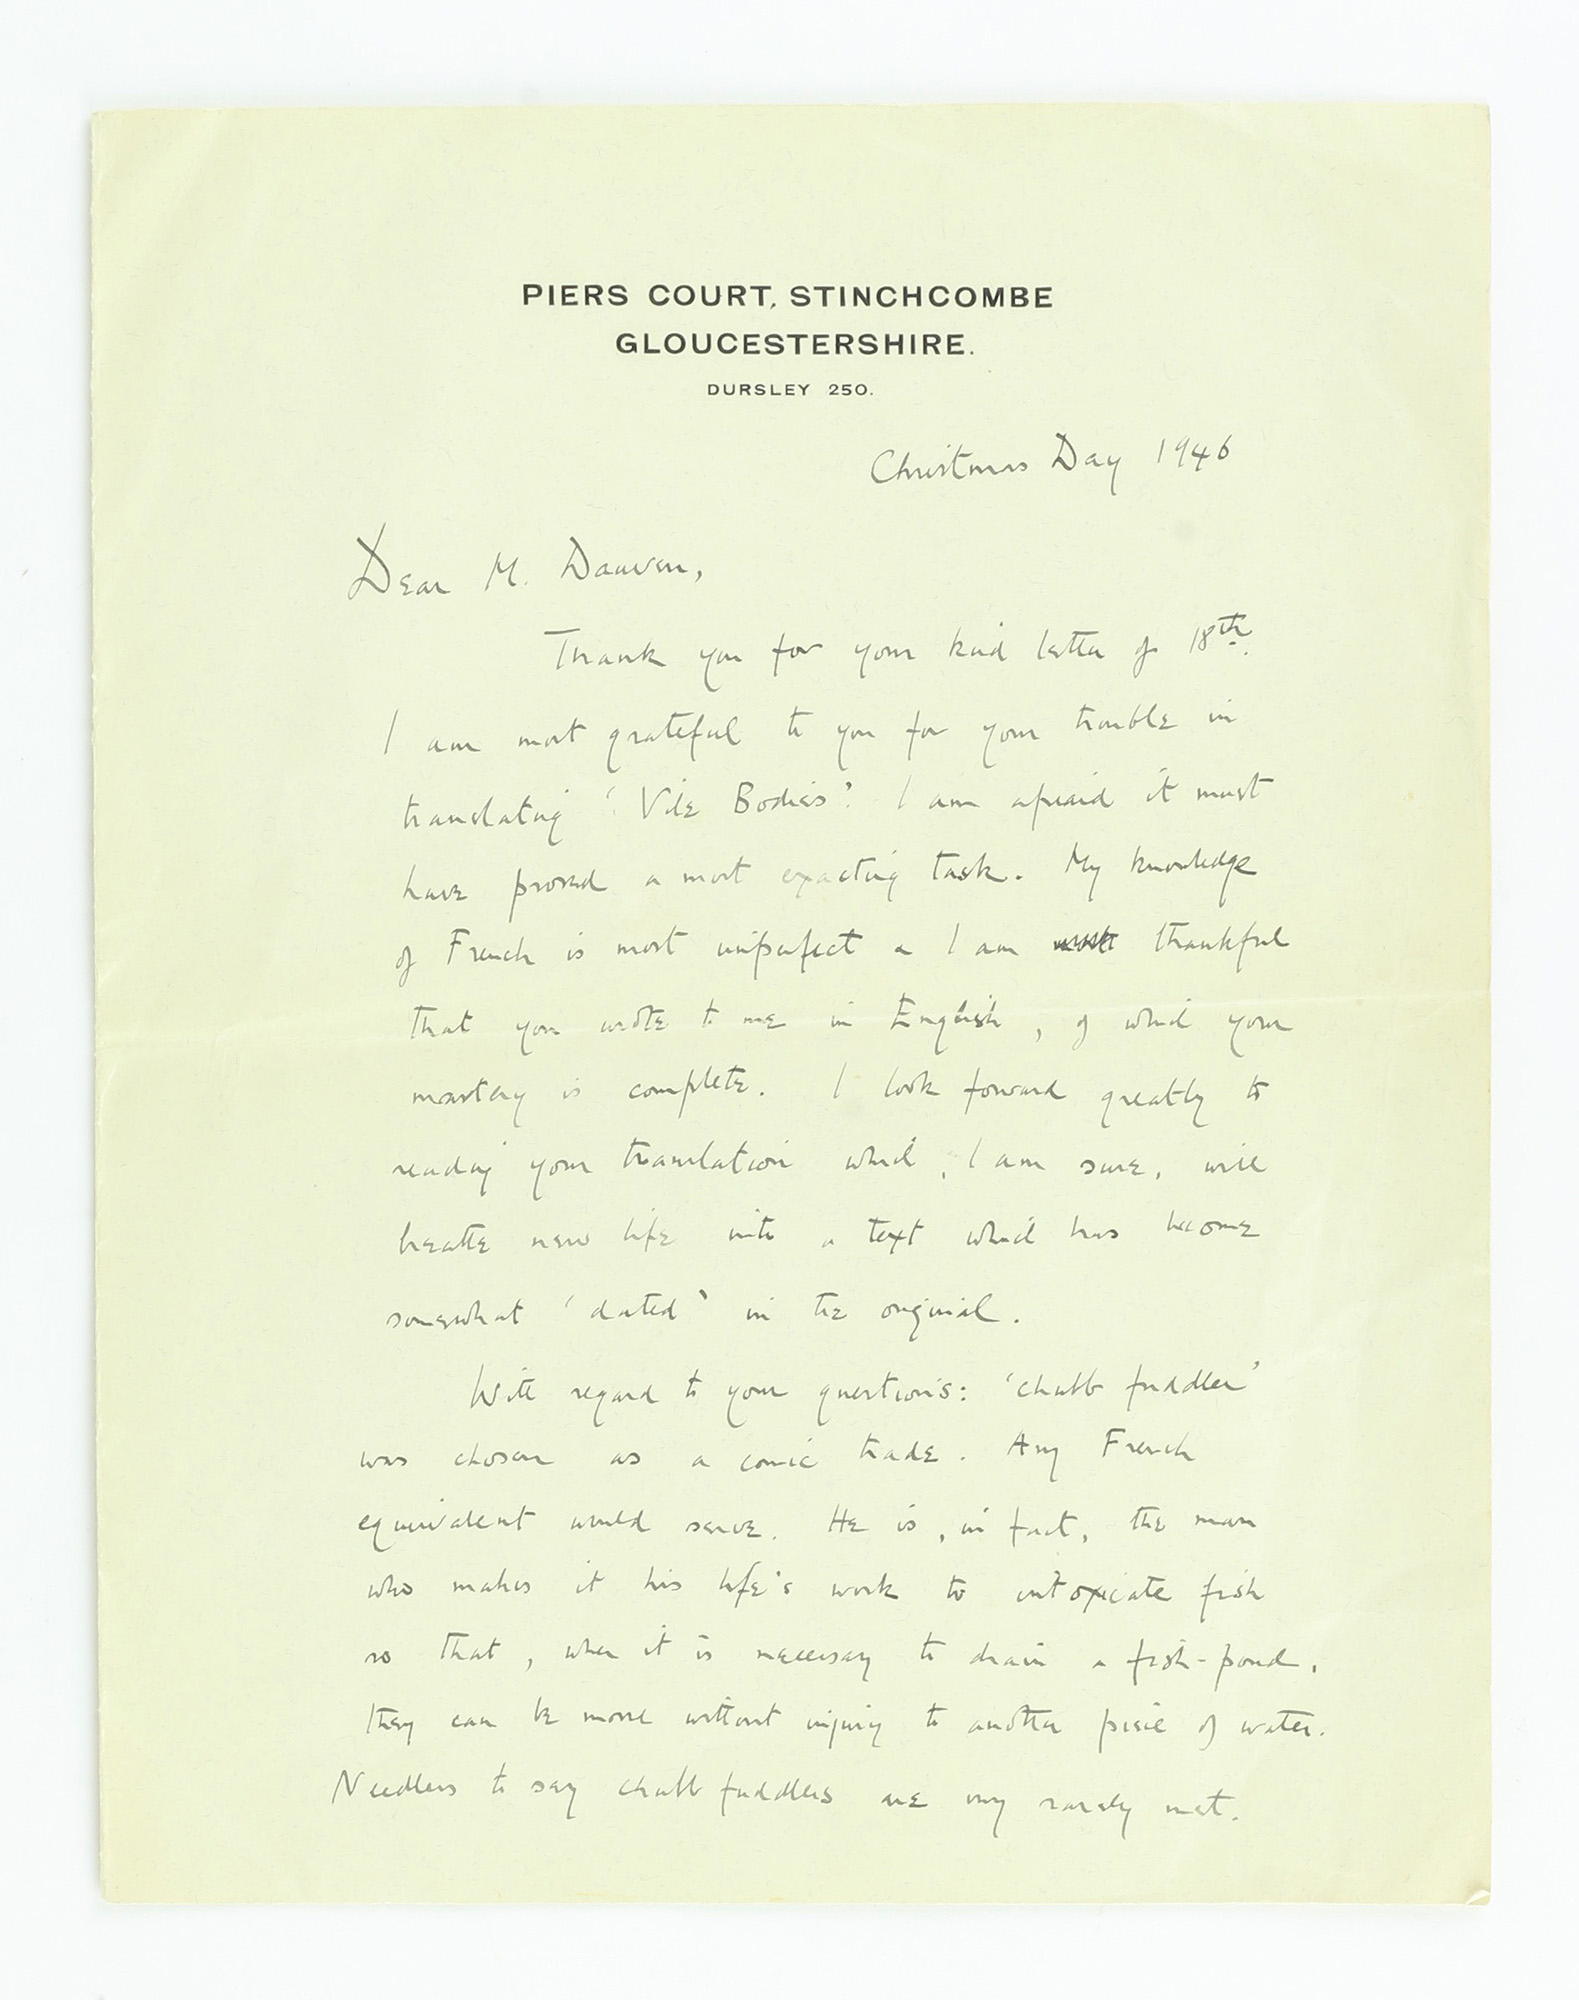 PIERS COURT, STINCHCOMBE
GLOUCESTERSHIRE.
DURSLEY 250.
Christmas Day 1946
Dear M. Dauven,
Thank you for your kind letter of 18th.
I am most grateful to you for your trouble in
translating 'Vile Bodies'. I am afraid it must
have proved a most exacting task. My knowledge
of French is most imperfect & I am most thankful
that you wrote to me in English, of which your
mastery is complete. I look forward greatly to
reading your translation which, I am sure, will
breathe new life into a text which has become
somewhat 'dated' in the original.
With regard to your questions: 'chubb fuddler'
was chosen as a comic trade. Any French
equivalent would serve. He is, in fact, the man
who makes it his life's work to intoxicate fish
so that, when it is necessary to drain a fish-pond,
they can be moved without injury to another piece of water.
Needless to say chubb fuddlers are very rarely met.